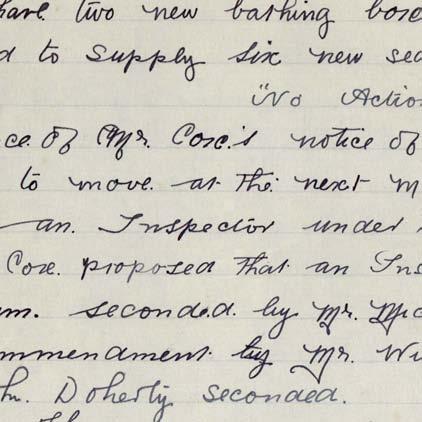 have two new bathing boxe
d to Supply six new sea
"No Action
ce of Mr. Coxe's notice of
to move at the next m
an Inspector under
Coxe. proposed that an Ins
m. seconded by Mr. Mc
mmendment by Mr. W
hn. Doherty seconded.